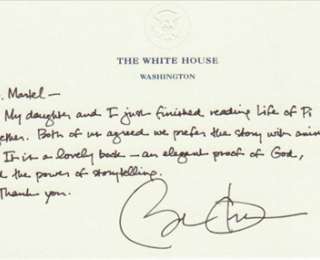 THE WHITE HOUSE
WASHINGTON
. Martel —
My daughter and I just finished reading Life of Pi
ether. Both of us agreed we prefer the story with anim
It is a lovely book — an elegant proof of God,
the power of storytelling.
Thank you.